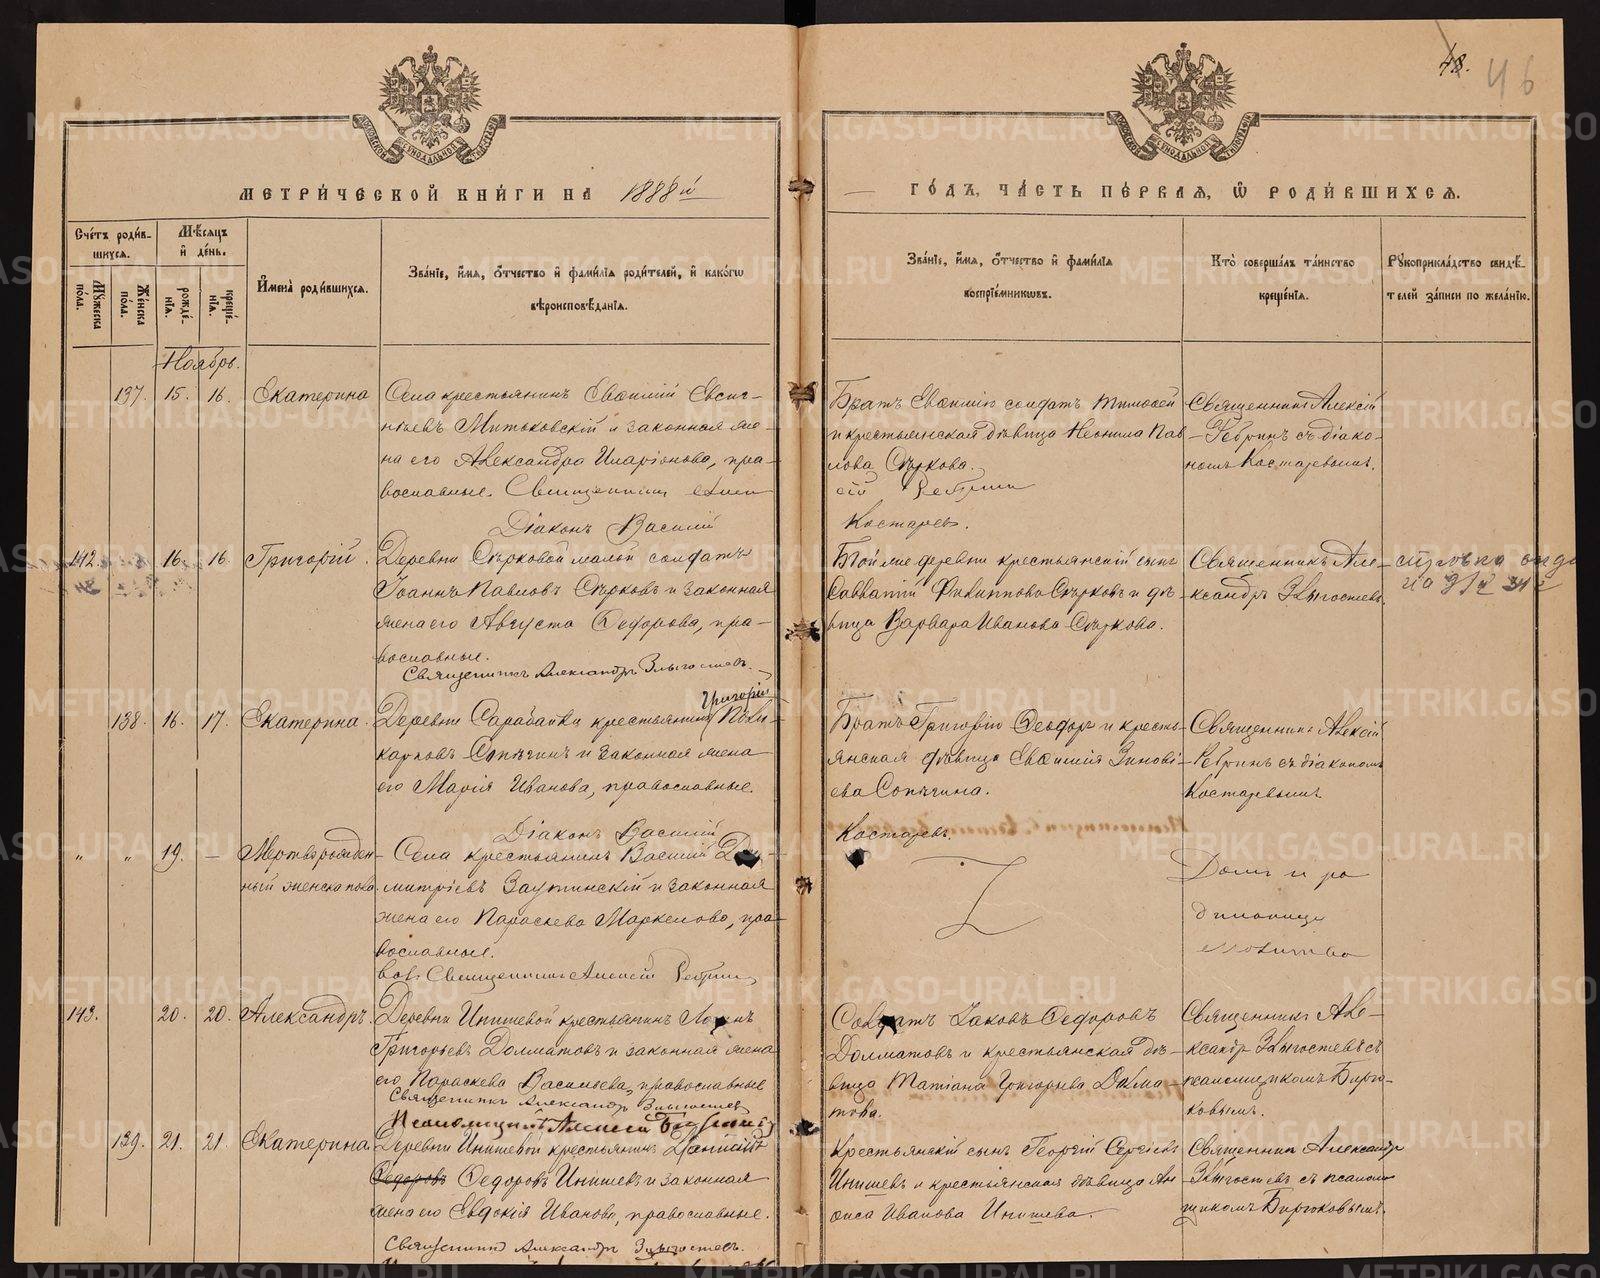 48. 46
МЕТРИ́ЧЕСКОЙ КНИ́ГИ НА 1888й
ГО́ДЪ, ЧА́СТЬ ПЕ́РВАЯ, Ѿ РОДИ́ВШИХСЯ.
Сче́тъ роди́в-
шихся.
Му́жеска по́ла.
Же́нска по́ла.
Мѣ́сяцъ
и̂ де́нь.
рожде́-
нїя.
креще́-
нїя.
И̂мена̀ роди́вшихся.
Зва́нїе, и̂́мя, о̂́тчество и̂ фами́лїя роди́телей, и̂ како́гѡ
вѣроисповѣ́данїя.
Зва́нїе, и̂́мя, о̂́тчество и̂ фами́лїя
воспрїе́мникѡвъ.
Кто̀ соверша́лъ та́инство
креще́нїя.
Рꙋкоприкла́дство свидѣ́-
телей за́писи по жела́нїю.
Ноябрь.
137. 15. 16. Екатерина
Села крестьянинъ Евѳимій Евсиг-
нѣевъ Митьковскій и законная же-
на его Александра Иларіонова, пра-
вославные. Священникъ Алек
Діаконъ Василій
Братъ Евѳимія солдатъ Тимоѳей
и крестьянская дѣвица Неонила Пав
лова Сѣркова.
сій Ребринъ
Костаревъ.
Священникъ Алексій
Ребринъ съ діако-
номъ Костаревымъ.
142. 16. 16. Григорій.
Деревни Сѣрковой малой солдатъ
Іоаннъ Павловъ Сѣрковъ и законная
жена его Августа Ѳедорова, пра-
вославные.
Священникъ Александръ Злыгостевъ.
Той же деревни крестьянскій сынъ
Савватій Филипповъ Сѣрковъ и дѣ-
вица Варвара Иванова Сѣркова.
Священникъ Але-
ксандръ Злыгостевъ
138. 16. 17. Екатерина.
Григорій
Деревни Сарабайки крестьянинъ Поли-
карповъ Сопѣгинъ и законная жена
его Марія Иванова, православные.
Діаконъ Василій
Братъ Григорія Ѳеодоръ и кресть-
янская дѣвица Евѳимія Зинові-
ева Сопѣгина.
Костаревъ.
Священникъ Алексій
Ребринъ съ діакономъ
Костаревымъ.
„ „ 19. — Мертворожден
ный женска пола.
Села крестьянинъ Василій Ди-
митріевъ Заутинскій и законная
жена его Параскева Маркелова, пра-
вославные.
Священникъ Алексій Ребринъ
Дому и ро
дильницѣ
молитва
143. 20. 20. Александръ.
Деревни Инишевой крестьянинъ
Григорьевъ Долматовъ и законная жена
его Параскева Васильева, православные
Священникъ Александръ Злыгостевъ
Псаломщикъ Алексѣй
Солдатъ Іаковъ Ѳедоровъ
Долматовъ и крестьянская дѣ-
вица Татіана Григорьева Долма-
това.
Священникъ Але-
ксандръ Злыгостевъ съ
псаломщикомъ Бирю-
ковымъ.
139. 21. 21. Екатерина.
Деревни Инишевой крестьянинъ Діонисій
Ѳедоровъ Ѳедоровъ Инишевъ и законная
жена его Евдокія Иванова, православные.
Священникъ Александръ Злыгостевъ.
Крестьянскій сынъ Георгій Сергіевъ
Инишевъ и крестьянская дѣвица Ан
фиса Иванова Инишева.
Священникъ Александръ
Злыгостевъ съ псалом
щикомъ Бирюковымъ.
METRIKI.GASO-URAL.RU